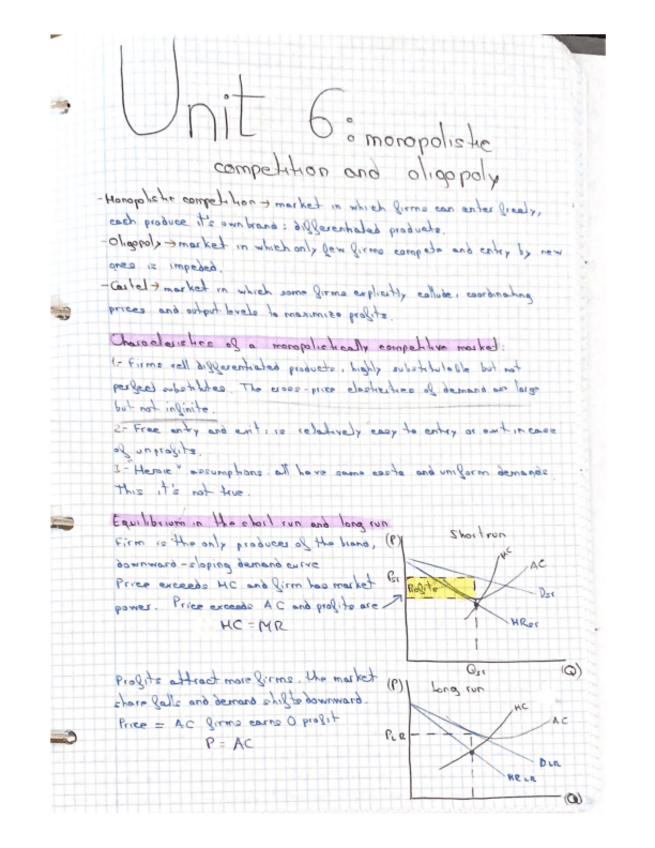 Unit 6: monopolistic
competition and oligopoly
- Monopolistic competition → market in which firms can enter freely,
each produce it's own brand: differentiated products.
- Oligopoly → market in which only few firms compete and entry by new
ones is impeded.
- Cartel → market in which some firms explicitly collude, coordinating
prices and output levels to maximize profits.
Characteristics of a monopolistically competitive market:
1- Firms sell differentiated products, highly substitutable but not
perfect substitutes. The cross-price elasticities of demand are large
but not infinite.
2- Free entry and exit: is relatively easy to entry or exit in case
of unprofits.
3- "Heroic" assumptions: all have same costs and uniform demands
This it's not true.
Equilibrium in the short run and long run
Firm is the only producer of the brand,
downward-sloping demand curve
Price exceeds MC and firm has market
power. Price exceeds AC and profits are
MC = MR
(P)
Short run
MC
AC
PSR
Profits
DSR
MRSR
QSR
(Q)
Profits attract more firms, the market
share falls and demand shifts downward.
Price = AC firms earns 0 profit
P = AC
(P)
Long run
MC
AC
PLR
DLR
MRLR
(Q)